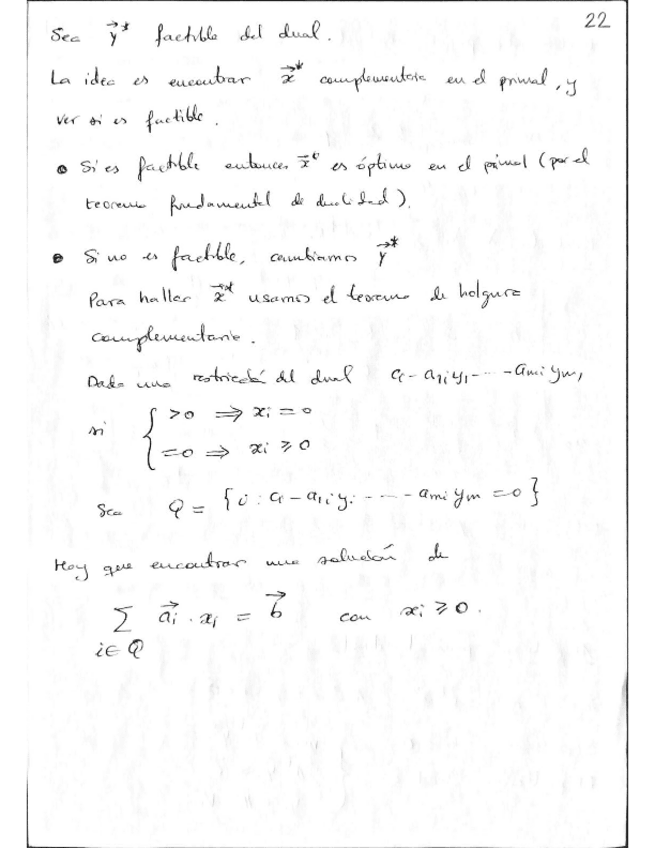 22
Sea y⃗* factible del dual.
La idea es encontrar x⃗* complementaria en el primal, y
ver si es factible.
• Si es factible entonces x⃗* es óptimo en el primal (por el
teorema fundamental de dualidad).
• Si no es factible, cambiamos y⃗*
Para hallar x⃗* usamos el teorema de holgura
complementaria.
Dada una restricción del dual ci - a1i y1 - ... - ami ym,
si { >0 ⟹ xi = 0
=0 ⟹ xi ≥ 0
Sea Q = { i : ci - a1i yi - ... - ami ym = 0 }
Hay que encontrar una solución de
∑ a⃗i · xi = b⃗ con xi ≥ 0.
i∈Q